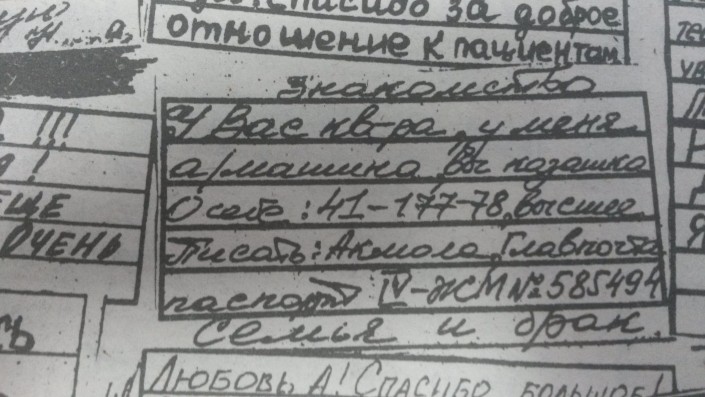 Спасибо за доброе
отношение к пациентам
Знакомство
У Вас кв-ра, у меня
а/машина, Вы казашка
О себе: 41-177-78, высшее
Писать: Акмола, Главпочта
паспорт IV-ЖМ №585494
Семья и брак.
!!!
!
ЕЩЕ
ОЧЕНЬ
Любовь А! Спасибо большое!